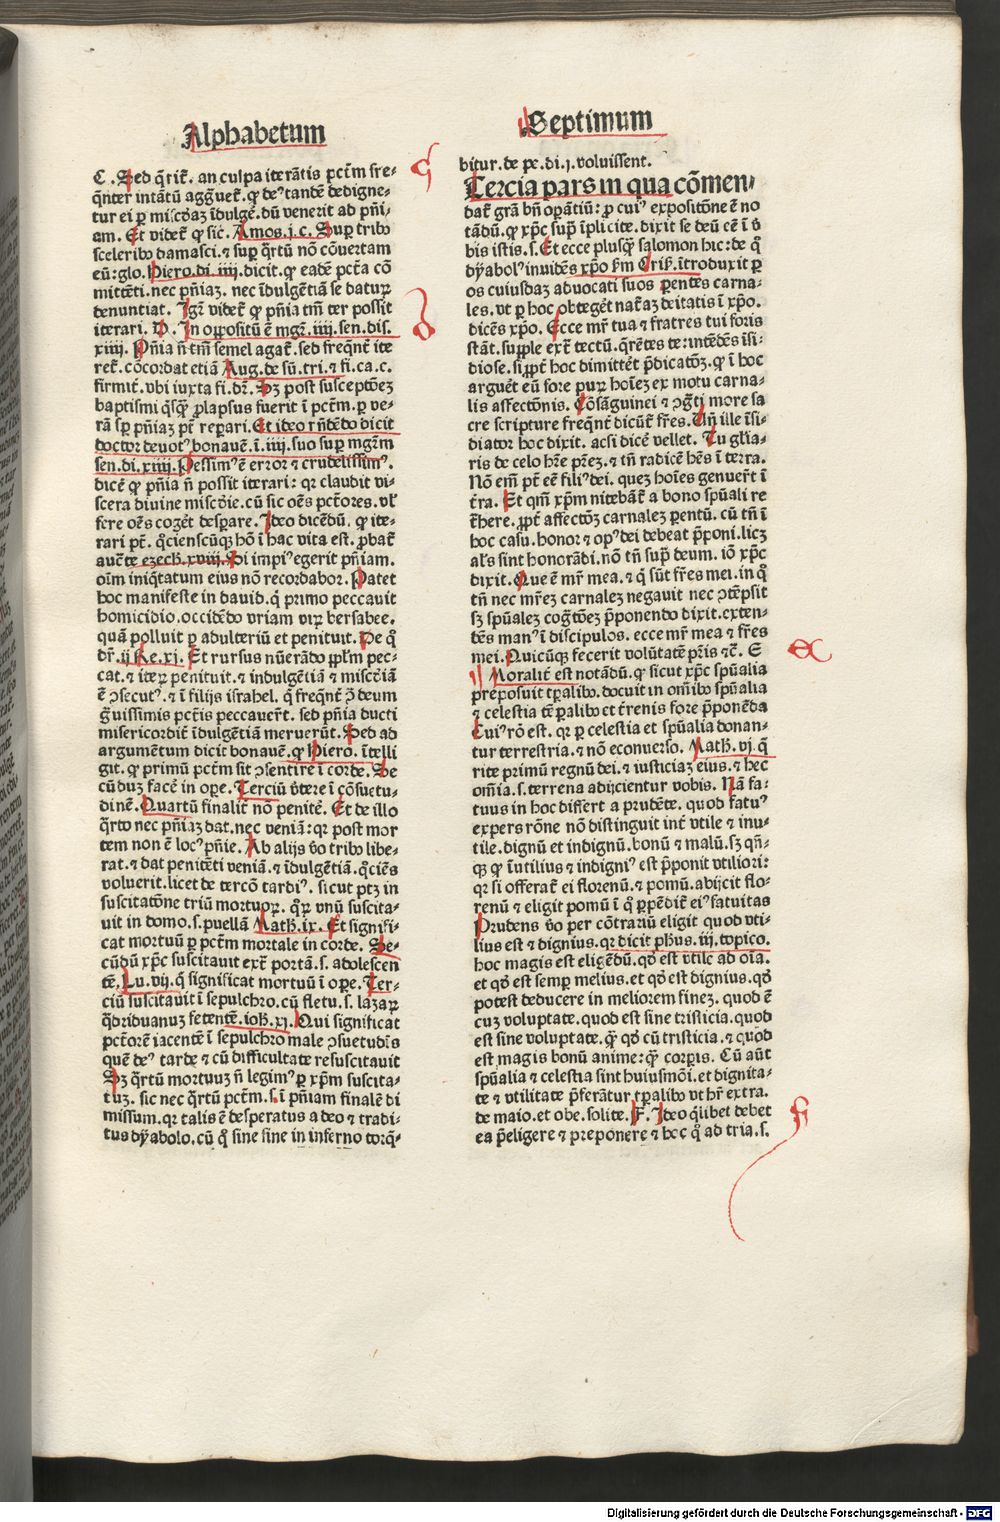 Alphabetum
Septimum
C. Sed q̄rit᷑. an culpa iterātis pctm̄ fre⸗
q̄nter intātū aggͣuet᷑. qͦ deꝰ tandē dedigne⸗
tur ei ꝑ miscꝺ̄iaꝫ īdulgē. dū venerit ad pn̄i⸗
am. Et videt᷑ qͦ sic. Amos.j.c. Suꝑ tribꝰ
sceleribꝰ damasci. ⁊ suꝑ q̄rtū nō cōuertam
eū: glo. Hiero. di. iiij. dicit. qͦ eadē pctā cō
mittēti. nec pn̄iaꝫ. nec īdulgētiā se daturꝫ
denuntiat. Igr̄ videt᷑ qͦ pn̄ia tm̄ ter possit
iterari. D. In oꝓpositū ē mgr̄. iiij. sen. dis.
xiiij. Pn̄ia n̄ tm̄ semel agat᷑. sed freq̄nt᷑ ite
ret᷑. cōcordat etiā Aug. de sū. tri. ⁊ fi. ca. c.
firmit᷑. vbi iuxta fi. dr̄. Sꝫ post susceptōeꝫ
baptismi qͥsqͥꝫ ꝓlapsus fuerit ī pctm̄. ꝑ ve⸗
rā sꝑ pn̄iaꝫ pt̄ reꝑari. Et ideo rn̄dēdo dicit
doctor deuotꝰ bonauē. ī. iiij. suo suꝑ mgr̄m
sen. di. xiiij. Pessimꝰ ē error ⁊ crudelissimꝰ.
dicē qͦ pn̄ia n̄ possit iterari: qr claudit vi⸗
scera diuine miscꝺ̄ie. cū sic oēs pctōres. vl᷑
fere oēs coget᷑ desꝑare. Ideo dicēdū. qͦ ite⸗
rari pt̄. qͦcienscūqꝫ hō ī hac vita est. ꝓbat᷑
auc̄te ezech. xviij. Si impiꝰ egerit pn̄iam.
oīm iniqͥtatum eius nō recordabor. Patet
hoc manifeste in dauid. qͥ primo peccauit
homicidio. occidēdo vriam virꝫ bersabee.
quā polluit ꝑ adulteriū et penituit. De qͦ
dr̄. ij Re. xj. Et rursus nūerādo pplm̄ pec⸗
cat. ⁊ iteꝝ penituit. ⁊ indulgētiā ⁊ miscꝺ̄iā
ē ↄsecutꝰ. ⁊ ī filijs israhel. qͥ freq̄nt᷑ ↄ̄ deum
gͣuissimis pctīs peccauer̄t. sed pn̄ia ducti
misericordit᷑ īdulgētiam meruerūt. Sed ad
argumētum dicit bonauē. qͦ Hiero. ītelli
git. qͦ primū pctm̄ sit ↄsentire ī corde. Se
cūduꝫ facē in oꝑe. Terciū v̄tere ī cōsuetu⸗
dinē. Quartū finalit᷑ nō penitē. Et de illo
q̄rto nec pn̄iaꝫ dat. nec veniā: qr post mor
tem non ē locꝰ pn̄ie. Ab alijs v̄o tribꝰ libe⸗
rat. ⁊ dat penitēti veniā. ⁊ īdulgētiā. qͦciēs
voluerit. licet de tercō tardiꝰ. sicut ptꝫ in
suscitatōne triū mortuoꝝ. qͦꝝ vnū suscita⸗
uit in domo. s. puellā Math. ix. Et signifi⸗
cat mortuū ꝑ pctm̄ mortale in corde. Se⸗
cūdū xp̄c suscitauit ext᷑ portā. s. adolescen
tē. Lu. vij. qͥ significat mortuū ī oꝑe. Ter⸗
ciū suscitauit ī sepulchro. cū fletu. s. lazaꝝ
qͣdriduanuꝫ fetentē. ioh. xj. Qui significat
pctōrē iacentē ī sepulchro male ↄsuetudīs
quē deꝰ tarde ⁊ cū difficultate resuscitauit
Sꝫ q̄rtū mortuuꝫ n̄ legimꝰ ꝑ xp̄m suscita⸗
tuꝫ. sic nec q̄rtū pctm̄. s. ī pn̄iam finalē di
missum. qr talis ē desperatus a deo ⁊ tradi⸗
tus dyabolo. cū qͦ sine sine in inferno torq̄⸗
bitur. de pe. di. j. voluissent.
Tercia pars in qua cōmen⸗
dat᷑ grā bn̄ oꝑantiū: ꝓ cuiꝰ expositōne ē no
tādū. qͦ xp̄c suꝑ īplicite. dixit se deū cē ī v̄
bis istis. s. Et ecce plusqͣꝫ salomon hic: de qͦ
dyabolꝰ inuidēs xp̄o ẜm Criſ. ītroduxit ꝑ
os cuiusdaꝫ aduocati suos ꝑentes carna⸗
les. vt ꝑ hoc obteget᷑ nat᷑aꝫ deitatis ī xp̄o.
dicēs xp̄o. Ecce mr̄ tua ⁊ fratres tui foris
stāt. supple ext᷑ tectū. q̄rētes te: intēdēs īsi⸗
diose. si ꝓpt᷑ hoc dimittēt p̄dicatōꝫ. qͦ ī hoc
arguēt eū fore puꝝ hoīeꝫ ex motu carna⸗
lis affectōnis. Cōsāguinei ⁊ ↄgͣti more sa
cre scripture freq̄nt᷑ dicūt᷑ fr̄es. Vn̄ ille īsi⸗
diator hoc dixit. acsi dicē vellet. Tu glīa⸗
ris de celo hr̄e pr̄eꝫ. ⁊ tn̄ radicē hēs ī terra.
Nō em̄ pt̄ eē filiꝰ dei. queꝫ hoīes genuer̄t ī
tr̄a. Et qm̄ xp̄m nitebāt᷑ a bono spūali re
tr̄here. ꝓpt᷑ affectōꝫ carnaleꝫ ꝑentū. cū tn̄ ī
hoc casu. honor ⁊ opꝰ dei debeat p̄poni. licꝫ
al᷑s sint honorādi. nō tn̄ suꝑ deum. iō xp̄c
dixit. Que ē mr̄ mea. ⁊ qͥ sūt fr̄es mei. in qͦ
tn̄ nec mr̄eꝫ carnaleꝫ negauit nec ↄtēpsit
sꝫ spūaleꝫ cogͣtōeꝫ p̄ponendo dixit. exten⸗
dēs manꝰ ī discipulos. ecce mr̄ mea ⁊ fr̄es
mei. Quicūqꝫ fecerit volūtatē pr̄is ⁊c̄. E
Moralit᷑ est notādū. qͦ sicut xp̄c spūalia
preposuit tꝑalibꝰ. docuit in oīnibꝰ spūalia
⁊ celestia tēꝑalibꝰ et tr̄renis fore p̄ponēda
Cuiꝰ rō est. qr ꝑ celestia et spūalia donan⸗
tur terrestria. ⁊ nō econuerso. Math. vj. q̄
rite primū regnū dei. ⁊ iusticiaꝫ eius. ⁊ hec
oīnia. s. terrena adijcientur vobis. Nā fa⸗
tuus in hoc differt a prudēte. quod fatuꝰ
expers rōne nō distinguit int᷑ vtile ⁊ inu⸗
tile. dignū et indignū. bonū ⁊ malū. sꝫ qn̄⸗
qꝫ qͦ īutilius ⁊ indigniꝰ est p̄ponit vtiliori:
qr si offerat᷑ ei florenū. ⁊ pomū. abijcit flo⸗
renū ⁊ eligit pomū ī qͦ ꝑpēdit᷑ eiꝰ fatuitas
Prudens v̄o per cōtrariū eligit quod vti⸗
lius est ⁊ dignius. qr dicit phus. iij. topico.
hoc magis est eligēdū. qd̄ est vtile ad oīa.
et qd̄ est semꝑ melius. et qd̄ est dignius. qd̄
potest deducere in meliorem fineꝫ. quod ē
cuꝫ voluptate. quod est sine tristicia. quod
est sine voluptate. qͣꝫ qd̄ cū tristicia. ⁊ quod
est magis bonū anime: qͣꝫ corꝑis. Cū aūt
spūalia ⁊ celestia sint huiusmōi. et dignita⸗
te ⁊ vtilitate p̄ferātur tꝑalibꝰ vt hr̄ extra.
de maio. et obe. solite. F. Ideo qͥlibet debet
ea p̄eligere ⁊ preponere ⁊ hec qͦ ad tria. s.
Digitalisierung gefördert durch die Deutsche Forschungsgemeinschaft - DFG